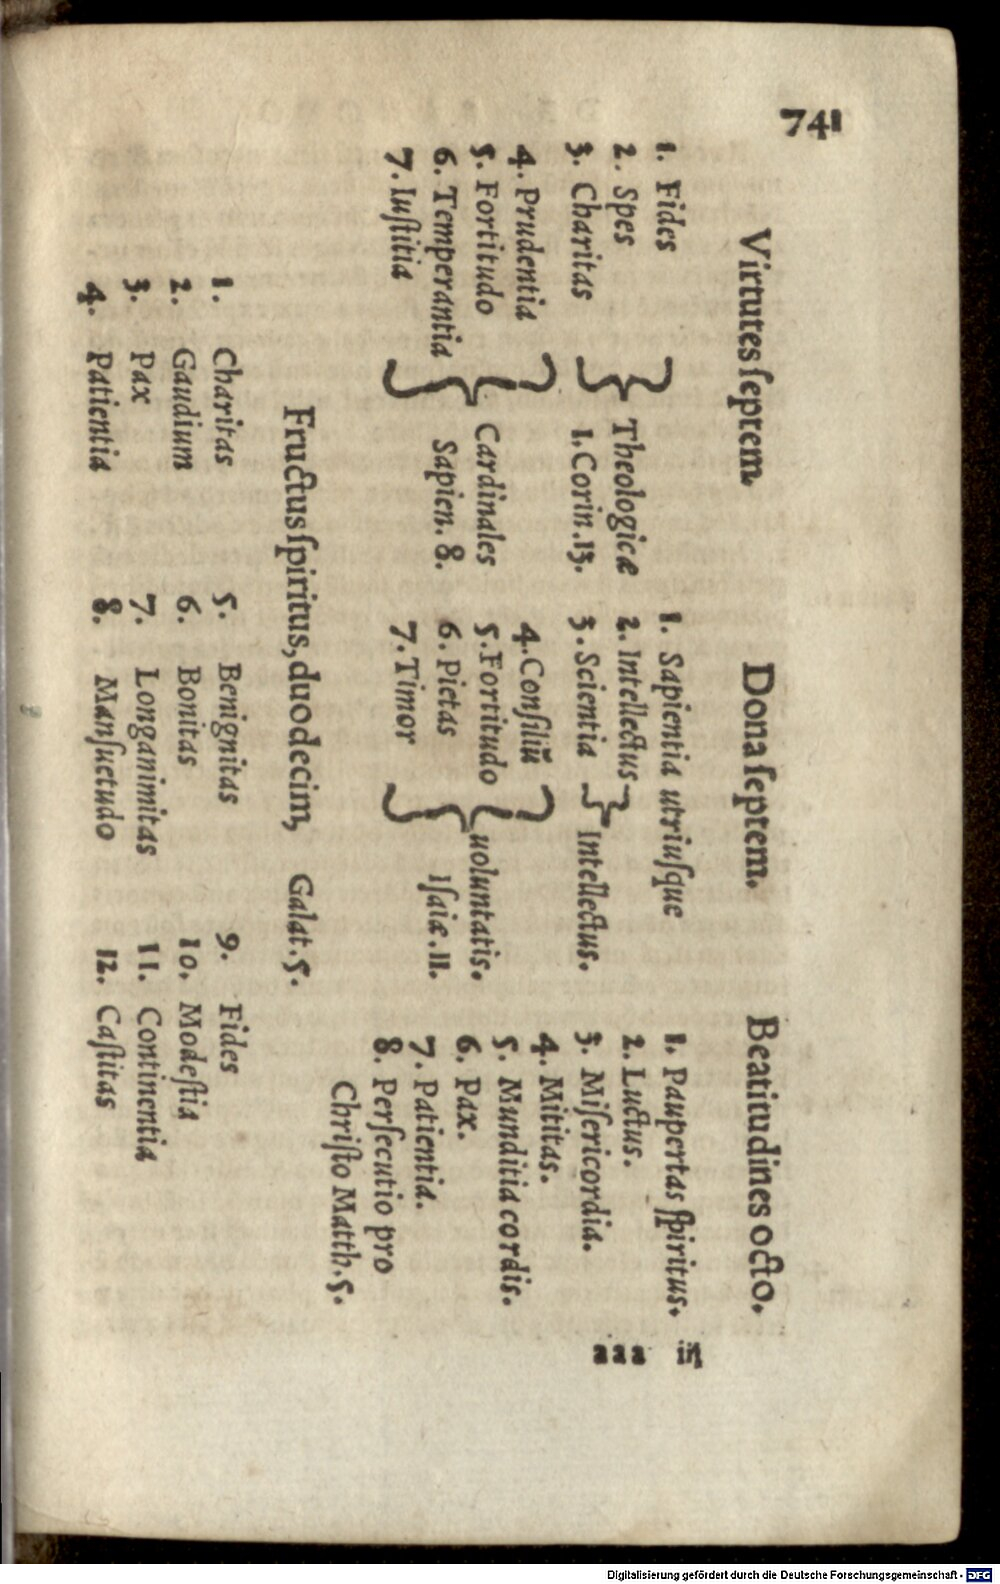 741
Virtutes ſeptem
1. Fides
2. Spes
3. Charitas
Theologicæ
1. Corin. 13.
4. Prudentia
5. Fortitudo
6. Temperantia
7. Iuſtitia
Cardinales
Sapien. 8.
Dona ſeptem.
1. Sapientia utriuſque
2. Intellectus
3. Scientia
Intellectus.
4. Conſiliū
5. Fortitudo
6. Pietas
7. Timor
uoluntatis.
Iſaiæ. 11.
Beatitudines octo.
1. Paupertas ſpiritus.
2. Luctus.
3. Miſericordia.
4. Mititas.
5. Munditia cordis.
6. Pax.
7. Patientia.
8. Perſecutio pro
Chriſto Matth. 5.
Fructus ſpiritus, duodecim, Galat. 5.
1. Charitas
2. Gaudium
3. Pax
4. Patientia
5. Benignitas
6. Bonitas
7. Longanimitas
8. Manſuetudo
9. Fides
10. Modeſtia
11. Continentia
12. Caſtitas
aaa iii
Digitalisierung gefördert durch die Deutsche Forschungsgemeinschaft - DFG